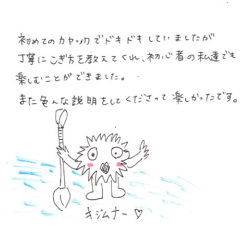 初めてのカヤックでドキドキしていましたが
丁寧にこぎ方を教えてくれ、初心者の私達でも
楽しむことができました。
また色んな説明をしてくださって楽しかったです。
キジムナー♡